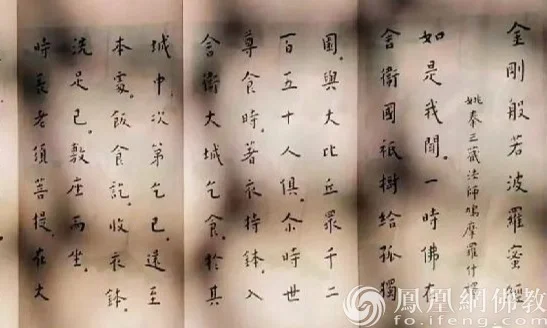 金剛般若波羅蜜經
姚秦三藏法師鳩摩羅什譯
如是我聞。一時佛在
舍衛國祇樹給孤獨
園。與大比丘眾千二
百五十人俱。尒時世
尊食時。著衣持鉢。入
舍衛大城乞食。於其
城中次第乞已。還至
本處。飯食訖。收衣鉢。
洗足已。敷座而坐。
時長老須菩提。在大
鳳凰網佛教
fo.ifeng.com